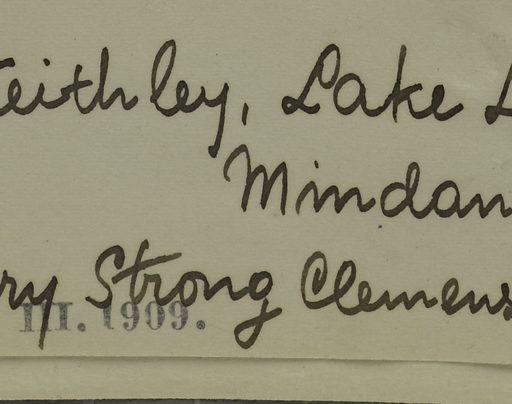 eithley, Lake L
Mindan
ry Strong Clemens
III. 1909.